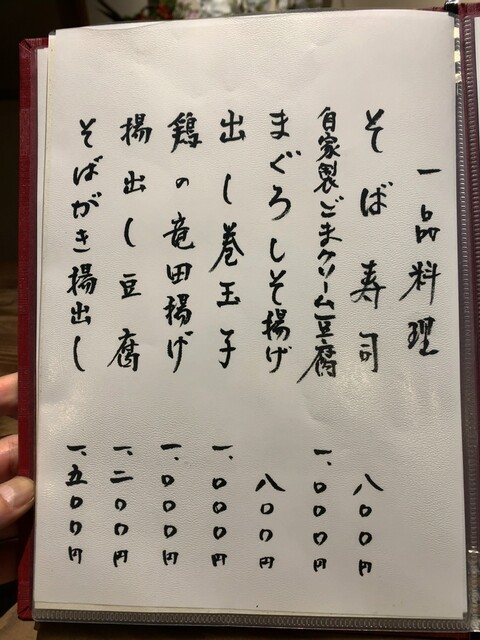 一品料理
そば寿司 八〇〇円
自家製ごまクリーム豆腐 一、〇〇〇円
まぐろしそ揚げ 八〇〇円
出し巻玉子 一、〇〇〇円
鶏の竜田揚げ 一、〇〇〇円
揚出し豆腐 一、二〇〇円
そばがき揚出し 一、五〇〇円